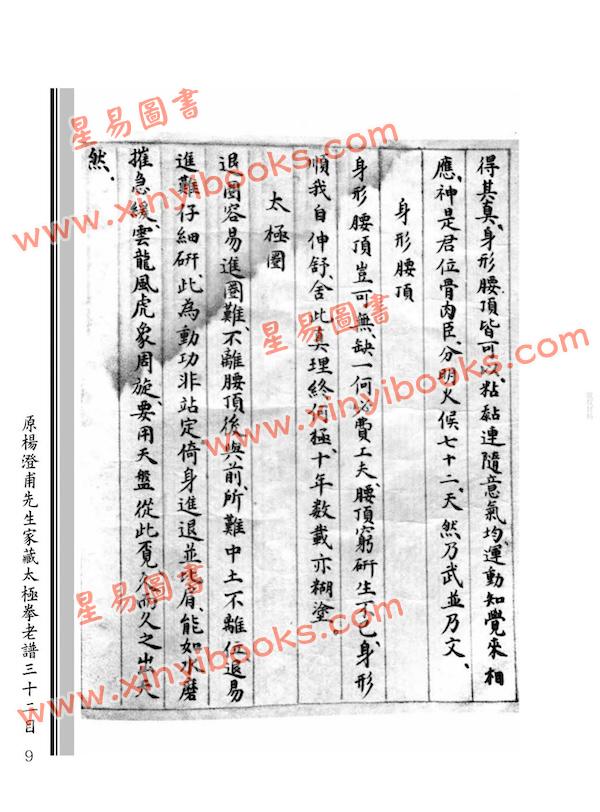 得其真、身形腰頂皆可以、粘黏連隨意氣均、運動知覺來相
應、神是君位骨肉臣、分明火候七十二、天然乃武並乃文、
身形腰頂
身形腰頂豈可無、缺一何必費工夫、腰頂窮研生不已、身形
順我自伸舒、舍此真理終何極、十年数載亦糊塗、
太極圈
退圈容易進圈難、不離腰頂後與前、所難中土不離位、退易
進難仔細研、此為動功非站定、倚身進退並比肩、能如水磨
摧急緩、雲龍風虎象周旋、要用天盤從此覓、久而久之出天
然、
原楊澄甫先生家藏太極拳老譜三十二目
9
星易圖書
www.xinyibooks.com
星易圖書
www.xinyibooks.com
星易圖書
www.xinyibooks.com
星易圖書
www.xinyibooks.com